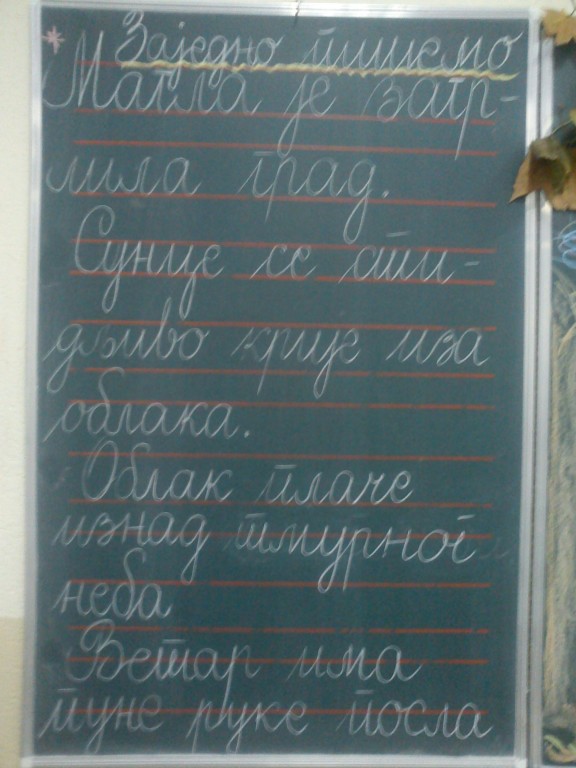 * Заједно пишемо
Магла је загр-
лила град.
Сунце се сти-
дљиво крије иза
облака.
Облак плаче
изнад тмурног
неба
Ветар има
пуне руке посла